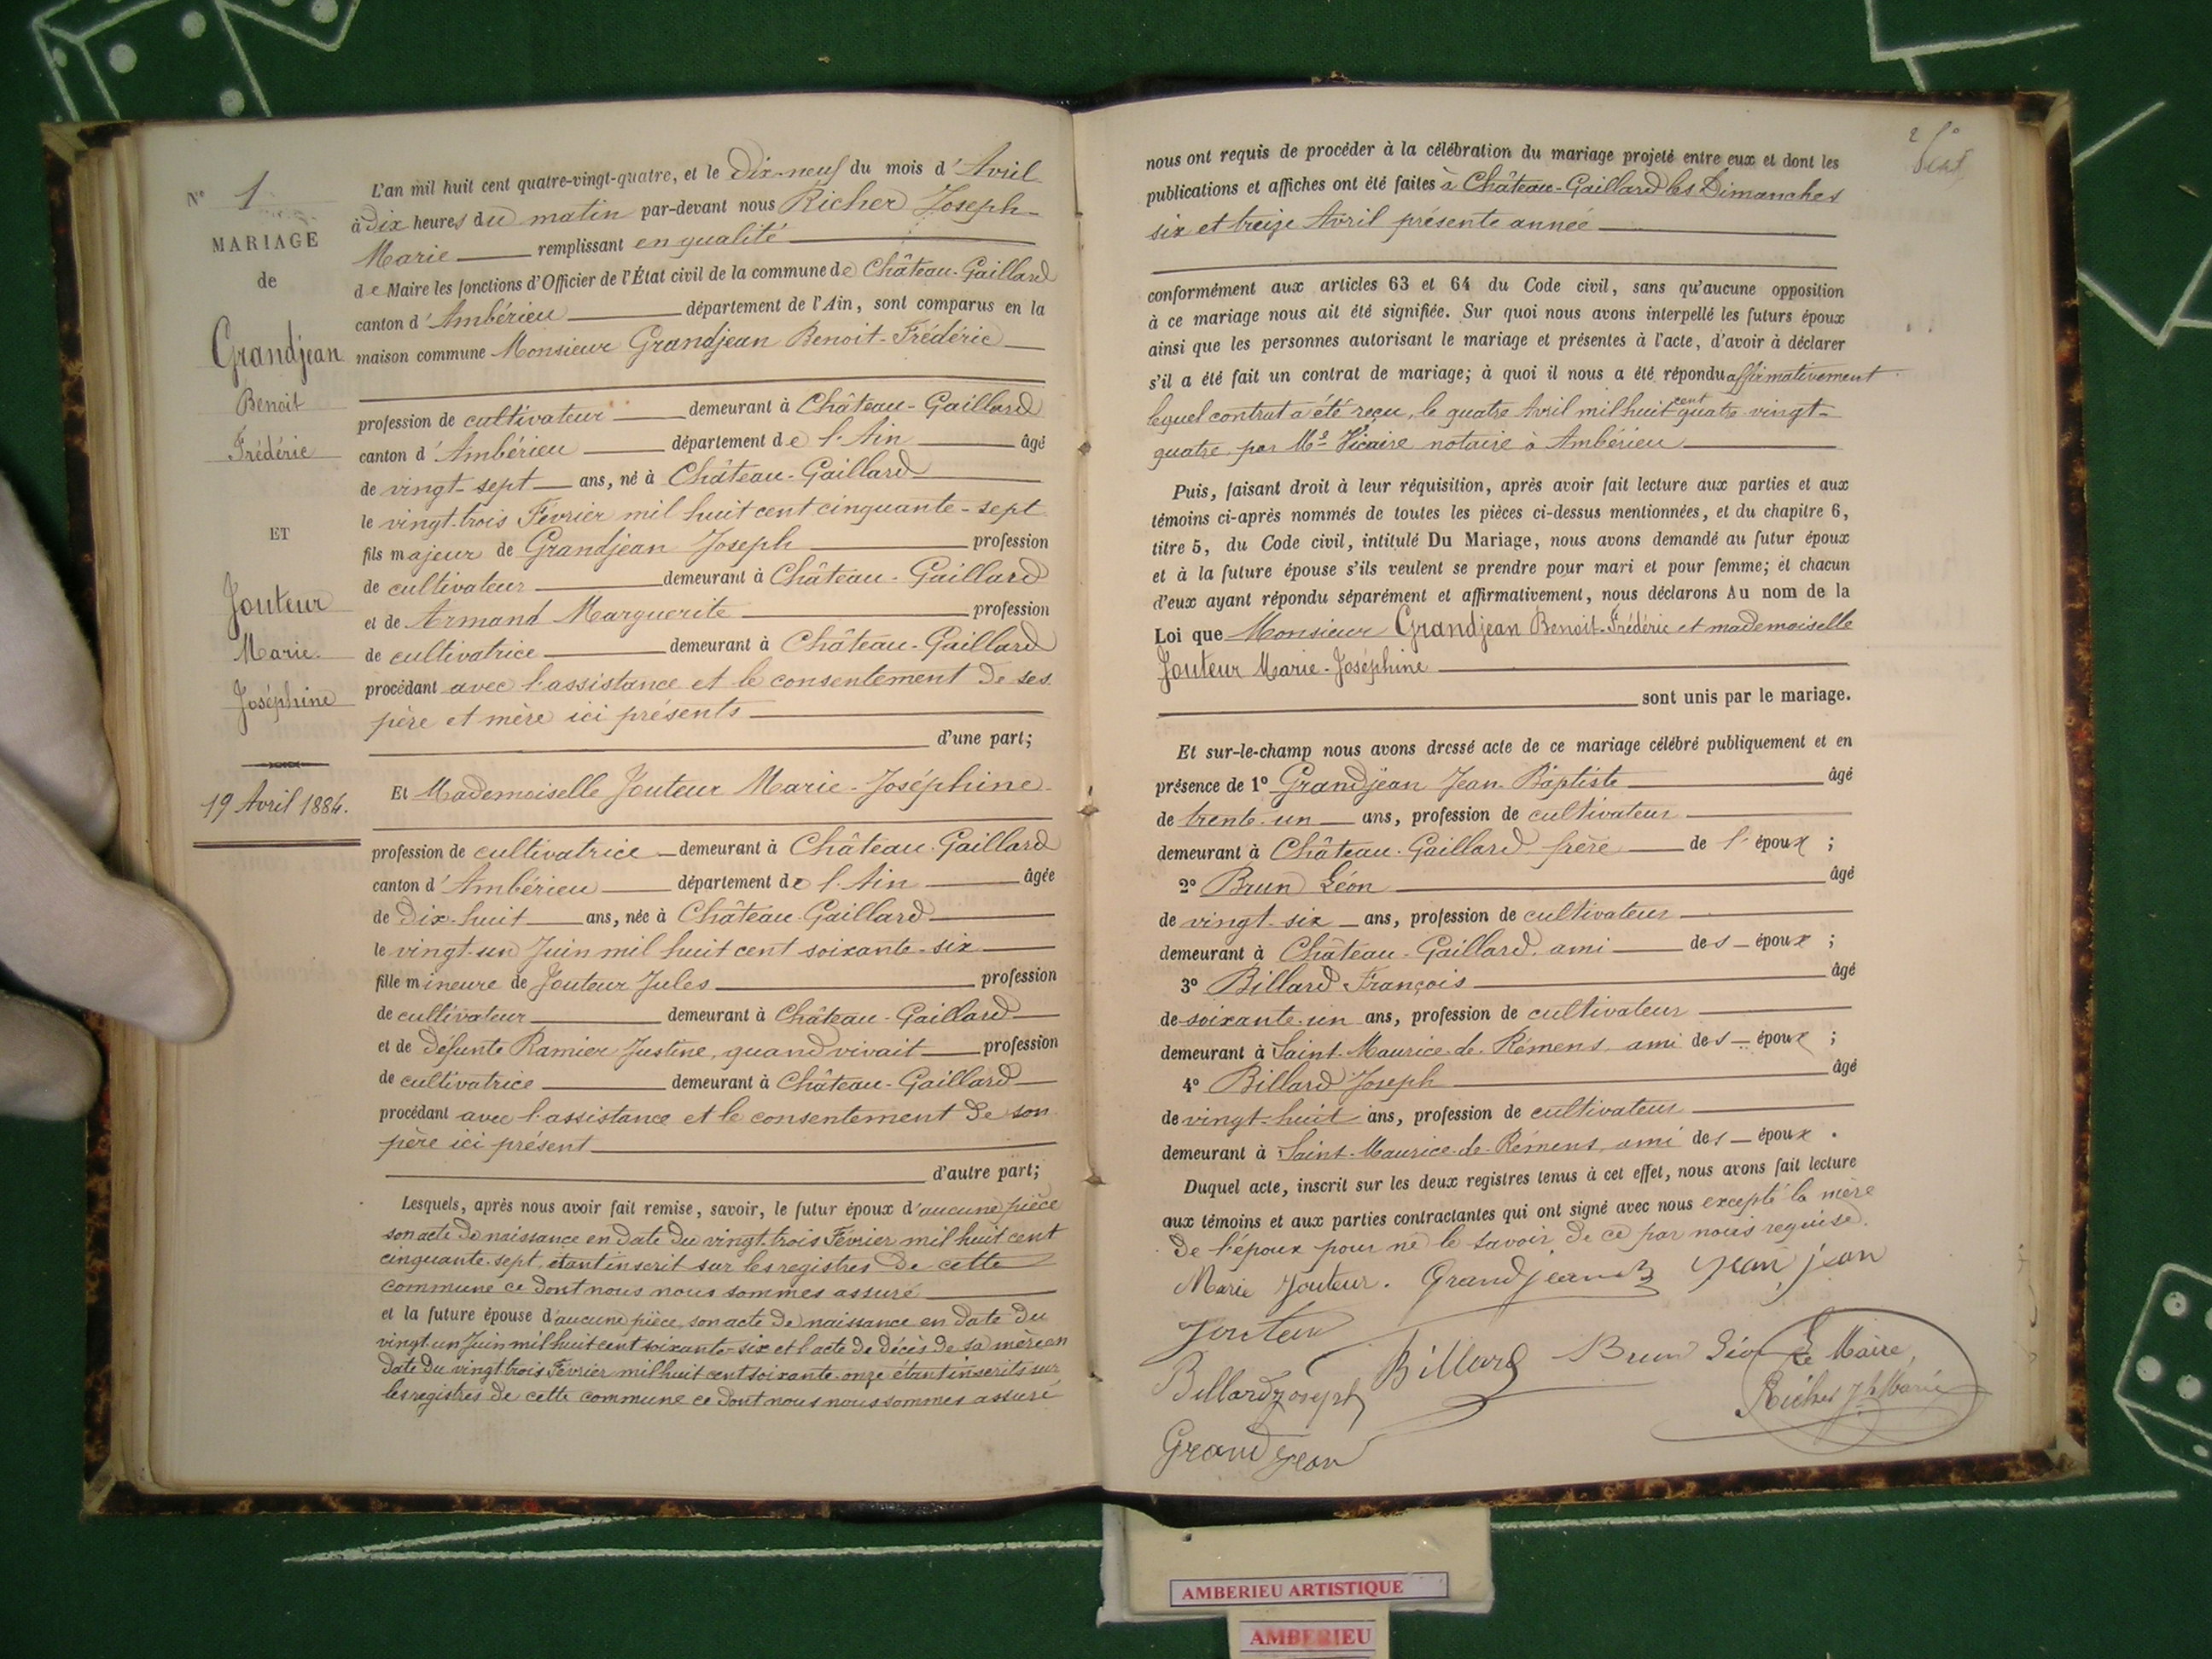 N° 1
MARIAGE
de
Grandjean
Benoit
Frédéric
ET
Jouteur
Marie
Joséphine
19 Avril 1884.
L'an mil huit cent quatre-vingt-quatre, et le Dix-neuf du mois d'Avril
à Dix heures du matin par-devant nous Richer Joseph-
Marie remplissant en qualité
de Maire les fonctions d'Officier de l'État civil de la commune de Château-Gaillard
canton d'Ambérieu département de l'Ain, sont comparus en la
maison commune Monsieur Grandjean Benoit-Frédéric
profession de cultivateur demeurant à Château-Gaillard
canton d'Ambérieu département de l'Ain âgé
de vingt-sept ans, né à Château-Gaillard
le vingt-trois Février mil huit cent cinquante-sept
fils majeur de Grandjean Joseph profession
de cultivateur demeurant à Château-Gaillard
et de Armand Marguerite profession
de cultivatrice demeurant à Château-Gaillard
procédant avec l'assistance et le consentement de ses
père et mère ici présents
d'une part;
Et Mademoiselle Jouteur Marie-Joséphine
profession de cultivatrice demeurant à Château-Gaillard
canton d'Ambérieu département de l'Ain âgée
de Dix-huit ans, née à Château-Gaillard
le vingt-un Juin mil huit cent soixante-six
fille mineure de Jouteur Jules profession
de cultivateur demeurant à Château-Gaillard
et de défunte Ramier Justine, quand vivait profession
de cultivatrice demeurant à Château-Gaillard
procédant avec l'assistance et le consentement de son
père ici présent
d'autre part;
Lesquels, après nous avoir fait remise, savoir, le futur époux d'aucune pièce
son acte de naissance en date du vingt-trois Février mil huit cent
cinquante-sept, étant inscrit sur les registres de cette
commune ce dont nous nous sommes assuré
et la future épouse d'aucune pièce, son acte de naissance en date du
vingt-un Juin mil huit cent soixante-six et l'acte de décès de sa mère en
date du vingt trois Février mil huit cent soixante-onze étant inscrits sur
les registres de cette commune ce dont nous nous sommes assuré
nous ont requis de procéder à la célébration du mariage projeté entre eux et dont les
publications et affiches ont été faites à Château-Gaillard les Dimanches
six et treize Avril présente année
conformément aux articles 63 et 64 du Code civil, sans qu'aucune opposition
à ce mariage nous ait été signifiée. Sur quoi nous avons interpellé les futurs époux
ainsi que les personnes autorisant le mariage et présentes à l'acte, d'avoir à déclarer
s'il a été fait un contrat de mariage; à quoi il nous a été répondu affirmativement
lequel contrat a été reçu, le quatre Avril mil huit cent quatre-vingt-
quatre par Me Vicaire notaire à Ambérieu
Puis, faisant droit à leur réquisition, après avoir fait lecture aux parties et aux
témoins ci-après nommés de toutes les pièces ci-dessus mentionnées, et du chapitre 6,
titre 5, du Code civil, intitulé Du Mariage, nous avons demandé au futur époux
et à la future épouse s'ils veulent se prendre pour mari et pour femme; et chacun
d'eux ayant répondu séparément et affirmativement, nous déclarons Au nom de la
Loi que Monsieur Grandjean Benoit-Frédéric et mademoiselle
Jouteur Marie-Joséphine
sont unis par le mariage.
Et sur-le-champ nous avons dressé acte de ce mariage célébré publiquement et en
présence de 1° Grandjean Jean-Baptiste âgé
de trente-un ans, profession de cultivateur
demeurant à Château-Gaillard frère de l'époux ;
2° Brun Léon âgé
de vingt-six ans, profession de cultivateur
demeurant à Château-Gaillard, ami des époux ;
3° Billard François âgé
de soixante-un ans, profession de cultivateur
demeurant à Saint-Maurice-de-Rémens, ami des époux ;
4° Billard Joseph âgé
de vingt-huit ans, profession de cultivateur
demeurant à Saint-Maurice-de-Rémens, ami des époux.
Duquel acte, inscrit sur les deux registres tenus à cet effet, nous avons fait lecture
aux témoins et aux parties contractantes qui ont signé avec nous excepté la mère
de l'époux pour ne le savoir de ce par nous requise.
Marie Jouteur. Grandjean
Jouteur
Billard Joseph Billard Brun Léon Le Maire,
Richer Jh Marie
Grandjean
AMBERIEU ARTISTIQUE
AMBERIEU